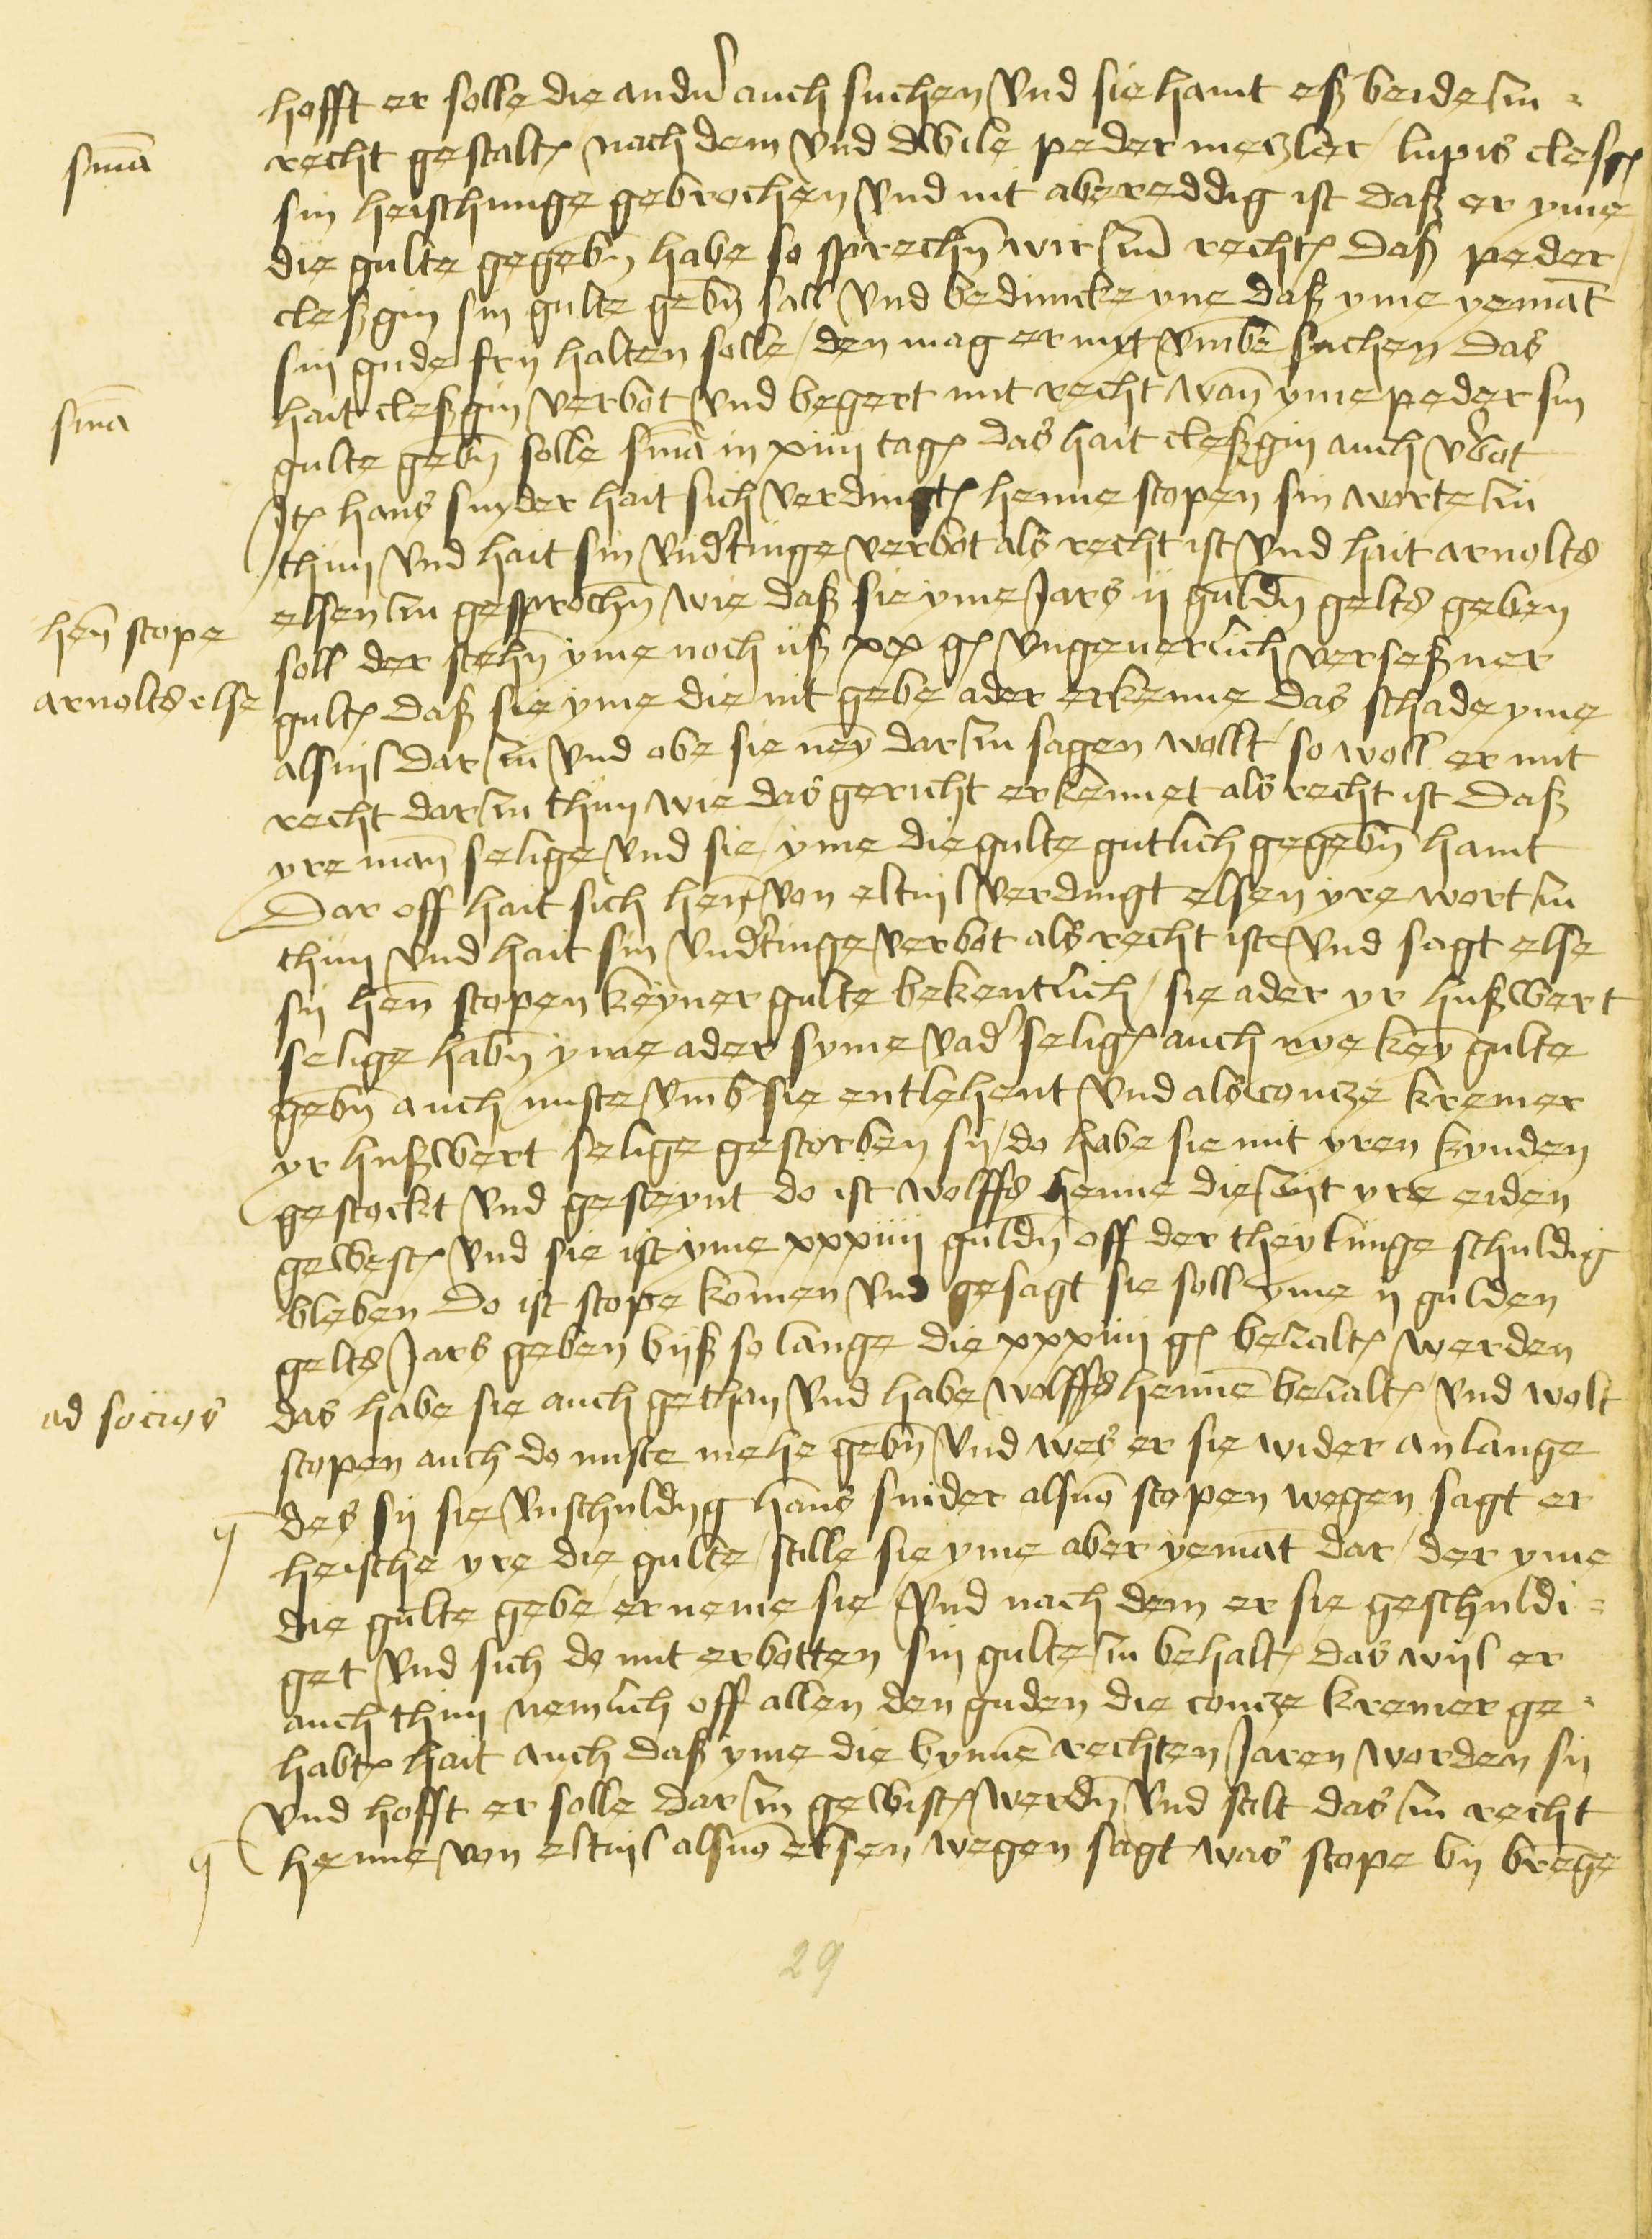 hofft er solle die andn̄ auch suchen vnd sie hant eß beide zu -
sm̄a
recht gestalt nach dem vnd dwile peder meczler lupis cleß
sin heischunge gebrochen vnd nit abereddig ist daß er yme
die gulte gegebn̄ habe so sprechn̄ wir zū recht daß peder
cleßgin sin gulte gebn̄ sall vnd beduncke yne daß yme yemāt
sin gude fry halten solle / den mag er nyt vmbe suchen das
sm̄a
hait cleßgin verbot vnd begert mit recht wan̄ yme peder sin
gulte gebn̄ solle sm̄a in xiiij tag das hait cleßgin auch v̉bot
Jt hans snyder hait sich verdingt henne stopen sin worte zu
thun vnd hait sin vndtinge verbot als recht ist vnd hait arnolts
hen̄ stope
arnolts else
elsen zu gesprochn̄ wie daß sie yme Jars ij guldn̄ gelts geben
soll der stehn̄ yme noch uß xx g vngeuerlich verseßner
gult daß sie yme die nit gebe ader erkenne das schade yme
alsuil dar zu vnd obe sie ney dar zu sagen wolt so woll er mit
recht dar zu thun wie das gericht erkennet als recht ist daß
yre man̄ selige vnd sie / yme die gulte gutlich gegebn̄ hant
Dar off hait sich hen̄ von eltuil verdingt elsen yre wort zu
thun vnd hait sin vndtinge verbot als recht ist vnd sagt else
sij hen̄ stopen keyner gulte bekentlich / sie ader yr hußwert
selige habn̄ yme ader syme vad̉ selig auch nye key gulte
gebn̄ auch nuste vmb sie entlehent vnd als contze kremer
yr hußwert selige gestorben sij / do habe sie mit yren kynden
gestockt vnd gesteynt do ist wolffs henne die zijt yre eiden
gewest vnd sie ist yme xxxiiij guldn̄ off der theylunge schuldig
bleben do ist stope kom̄en vnd gesagt sie soll yme ij gulden
gelts Jars geben biß so lange die xxxiiij g bezalt werden
ad socios
das habe sie auch gethan vnd habe wolffs hennē bezalt vnd wolt
stopen auch do nuste mehe gebn̄ vnd wes er sie wider anlange
des sij sie vnschuldig hans snider alsuō stopen wegen sagt er
heische yre die gulte / stille sie yme aber yemāt dar / der yme
die gulte gebe / er neme sie vnd nach dem er sie geschuldi -
get vnd sich do mit erbotten sin gulte zu behalt das wijl er
auch thun nemlich off allen den guden die contze kremer ge -
habt hait auch daß yme die bynnē rechten Jaren worden sij
vnd hofft er solle dar zu gewist werdn̄ vnd stilt das zu recht
henne von eltuil alsuō elsen wegen sagt was stope bij brēge
29